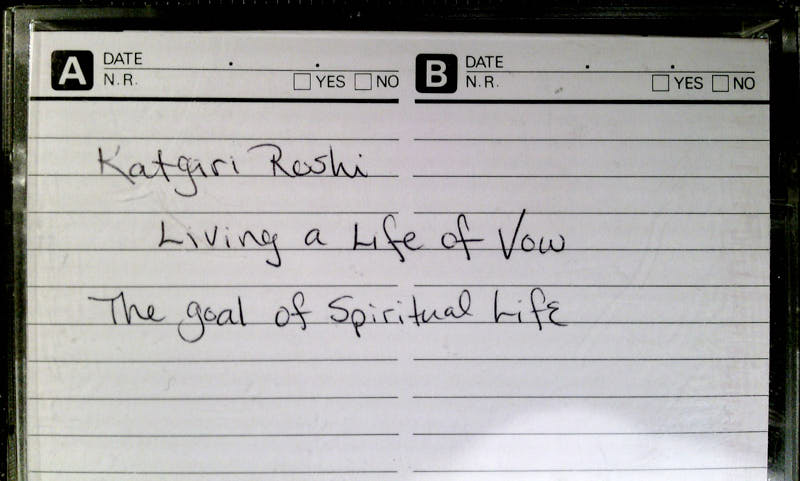 A DATE . . B DATE . .
N.R. YES NO N.R. YES NO
Katgiri Roshi
Living a Life of Vow
The goal of Spiritual Life